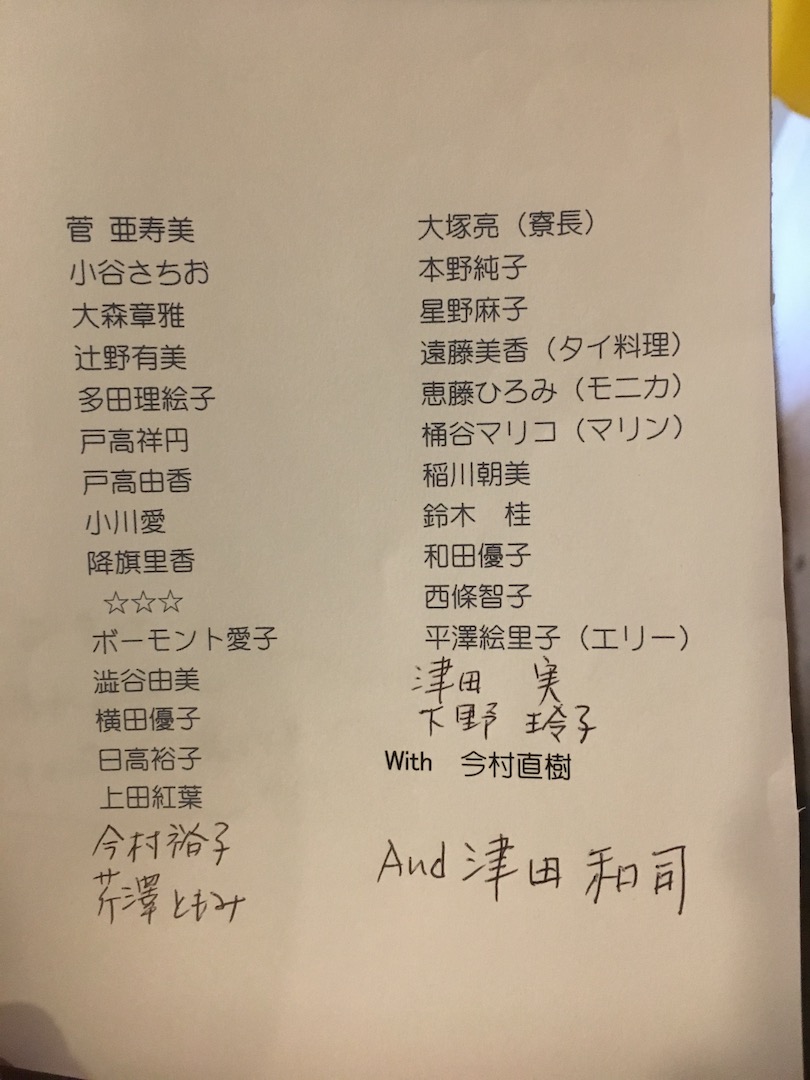 菅 亜寿美
小谷さちお
大森章雅
辻野有美
多田理絵子
戸高祥円
戸高由香
小川愛
降旗里香
☆☆☆
ボーモント愛子
澁谷由美
横田優子
日高裕子
上田紅葉
今村裕子
芹澤ともみ
大塚亮（寮長）
本野純子
星野麻子
遠藤美香（タイ料理）
恵藤ひろみ（モニカ）
桶谷マリコ（マリン）
稲川朝美
鈴木　桂
和田優子
西條智子
平澤絵里子（エリー）
津田　実
下野 玲子
With　今村直樹
And 津田 和司